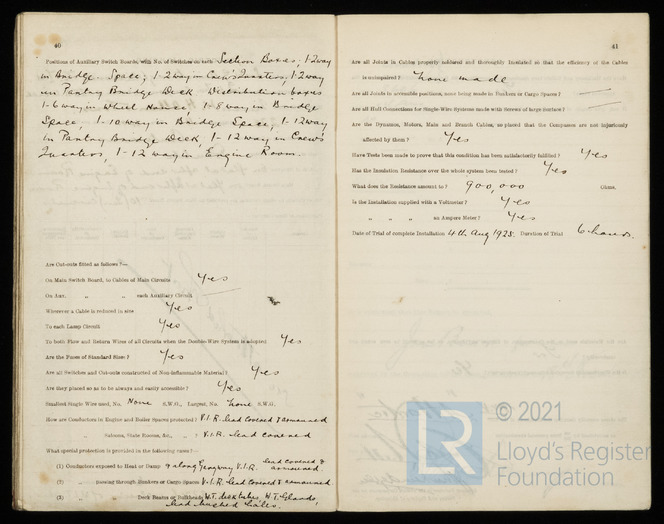 40
Positions of Auxiliary Switch Boards, with No. of Switches on each Section Boxes, 1-2way
in Bridge. Space; 1-2way in Crew's Quarters, 1-2way
in Pantry Bridge Deck Distribution boxes
1-6 way in Wheel House 1-8 way in Bridge
Space, 1-10 way in Bridge Space, 1-12way
in Pantry Bridge Deck, 1-12 way in Crew's
Quarters, 1-12 way in Engine Room.
Are Cut-outs fitted as follows?—
On Main Switch Board, to Cables of Main Circuits Yes
On Aux. „ „ each Auxiliary Circuit
Wherever a Cable is reduced in size Yes
To each Lamp Circuit Yes
To both Flow and Return Wires of all Circuits when the Double-Wire System is adopted Yes
Are the Fuses of Standard Sizes? Yes
Are all Switches and Cut-outs constructed of Non-inflammable Material? Yes
Are they placed so as to be always and easily accessible? Yes
Smallest Single Wire used, No. None S.W.G., Largest, No. none S.W.G.
How are Conductors in Engine and Boiler Spaces protected? V.I.R. lead covered & armoured
„ Saloons, State Rooms, &c., „ ? V.I.R. lead covered
What special protection is provided in the following cases?—
(1) Conductors exposed to Heat or Damp & along Gangway V.I.R. lead covered & armoured
(2) „ passing through Bunkers or Cargo Spaces V.I.R. lead covered & armoured
(3) „ „ Deck Beams or Bulkheads W.T. deck tubes, W.T. Glands,
lead bushed holes.
41
Are all Joints in Cables properly soldered and thoroughly Insulated so that the efficiency of the Cables
is unimpaired? none made
Are all Joints in accessible positions, none being made in Bunkers or Cargo Spaces?
Are all Hull Connections for Single-Wire Systems made with Screws of large Surface?
Are the Dynamos, Motors, Main and Branch Cables, so placed that the Compasses are not injuriously
affected by them? Yes
Have Tests been made to prove that this condition has been satisfactorily fulfilled? Yes
Has the Insulation Resistance over the whole system been tested? Yes
What does the Resistance amount to? 900,000 Ohms.
Is the Installation supplied with a Voltmeter? Yes
„ „ „ an Ampere Meter? Yes
Date of Trial of complete Installation 4th Aug 1928. Duration of Trial 6 hours.
LR
© 2021
Lloyd's Register
Foundation